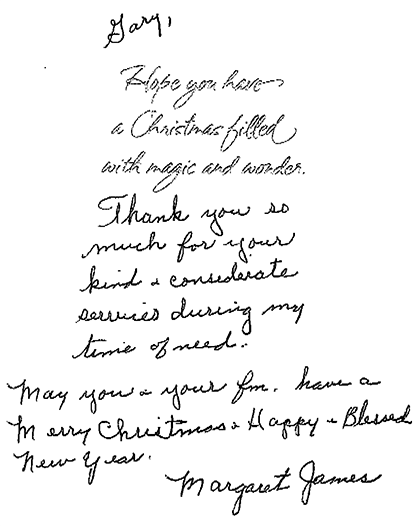 Gary,
Hope you have
a Christmas filled
with magic and wonder.
Thank you so
much for your
kind & considerate
services during my
time of need.
May you & your fm. have a
Merry Christmas & Happy & Blessed
New Year.
Margaret James